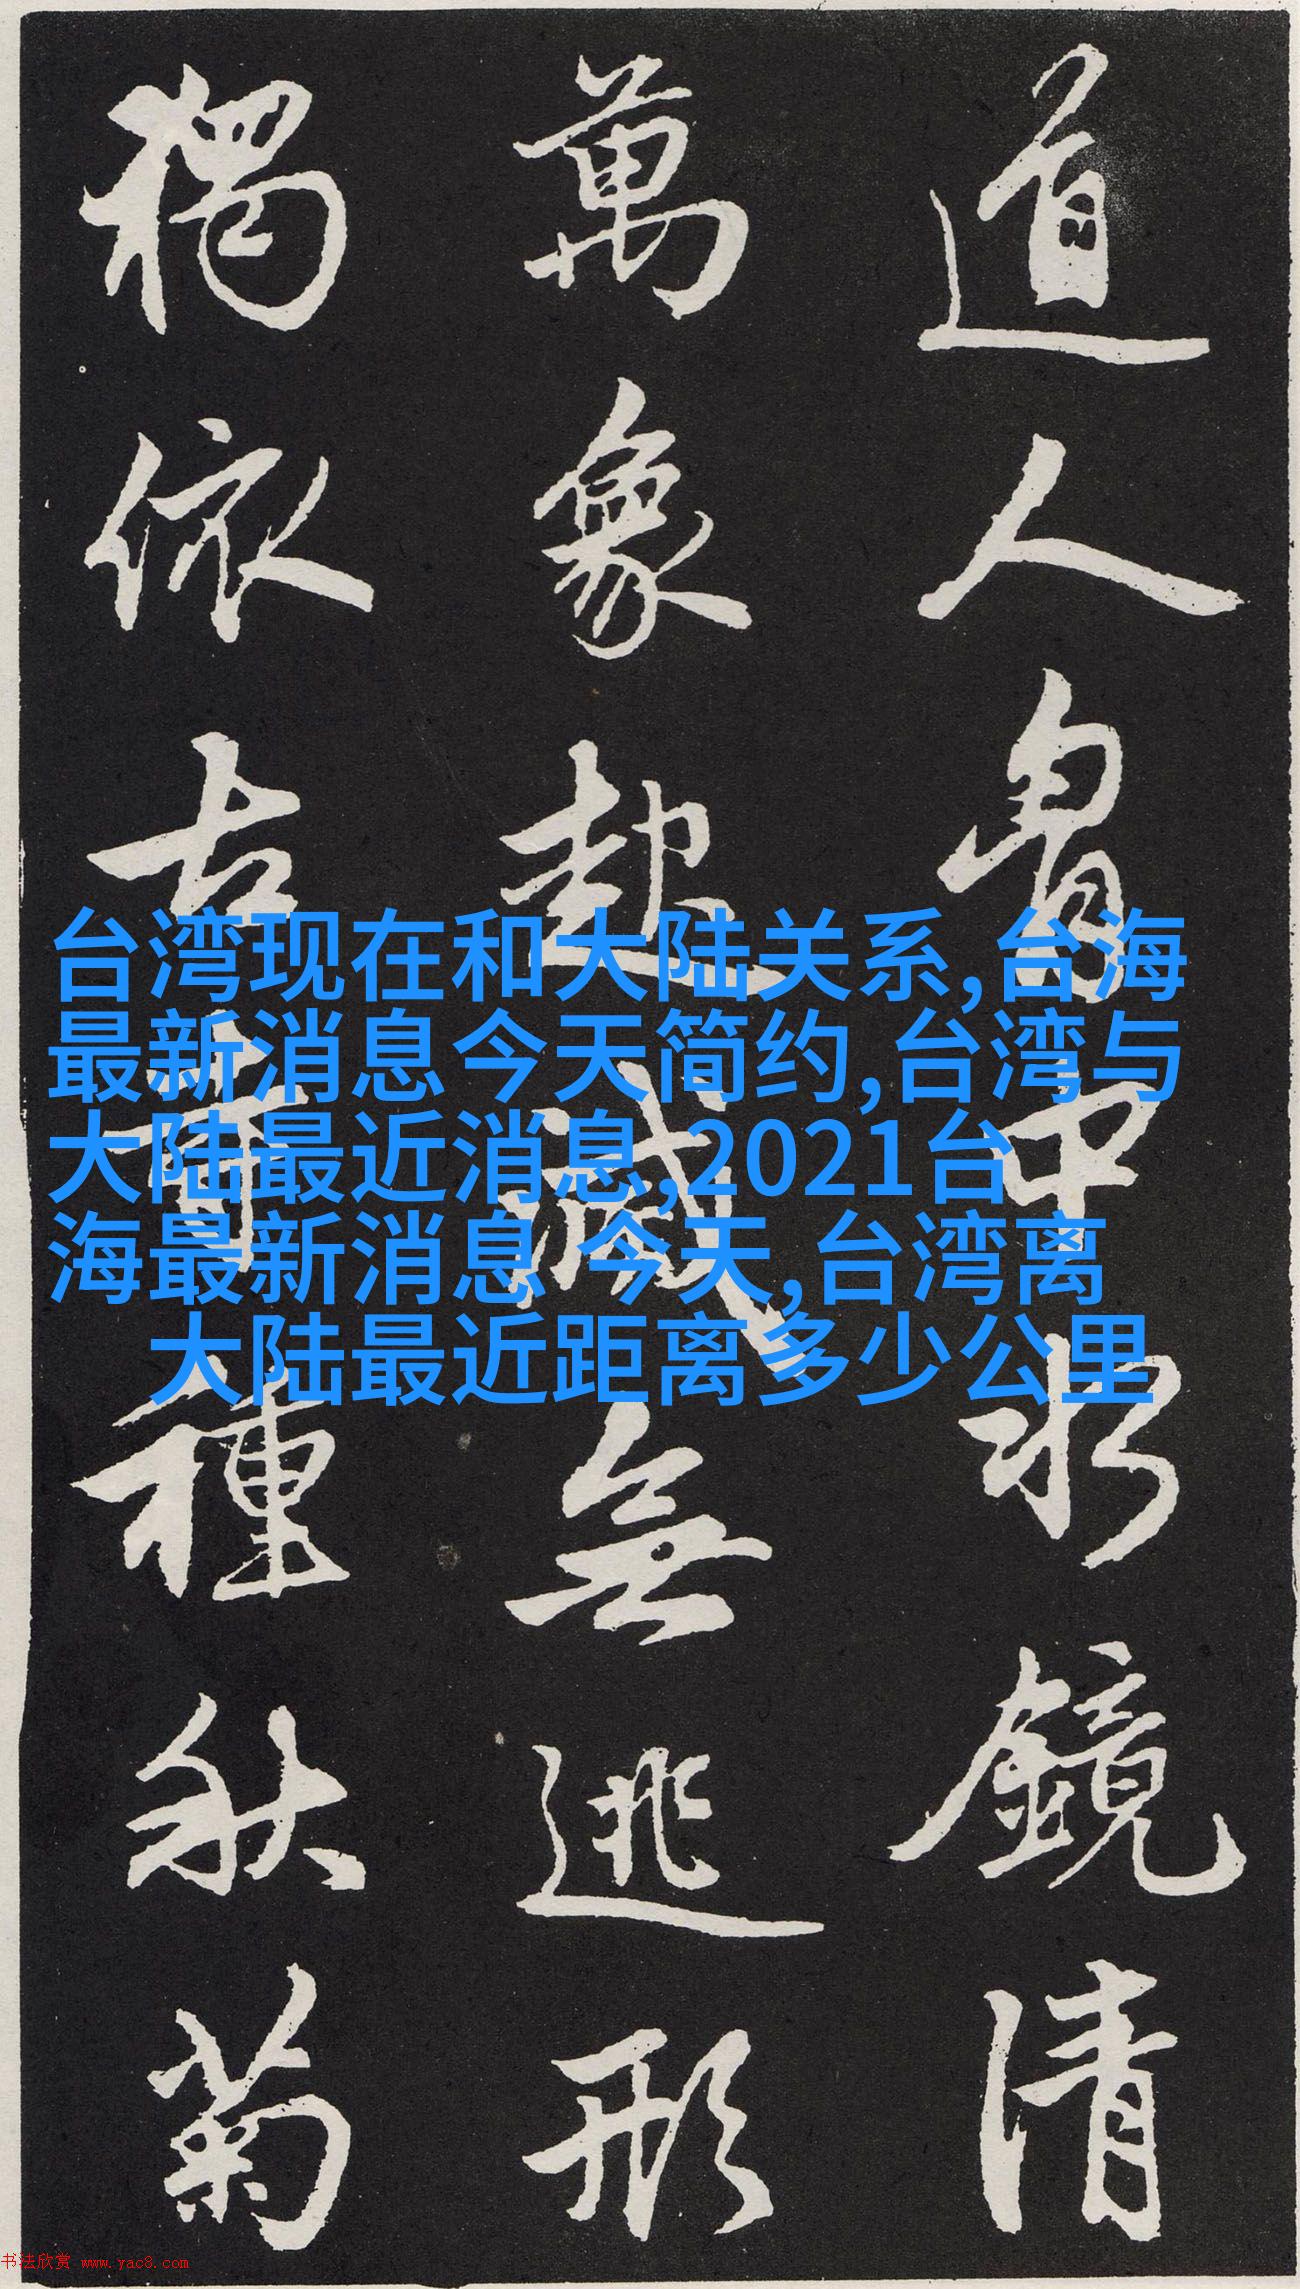 道人胷中水鏡清
萬象起滅無逃形
獨依古寺種秋菊
台湾现在和大陆关系,台海
最新消息今天简约,台湾与
大陆最近消息,2021台
海最新消息 今天,台湾离
大陆最近距离多少公里
书法欣赏 www.yac8.com